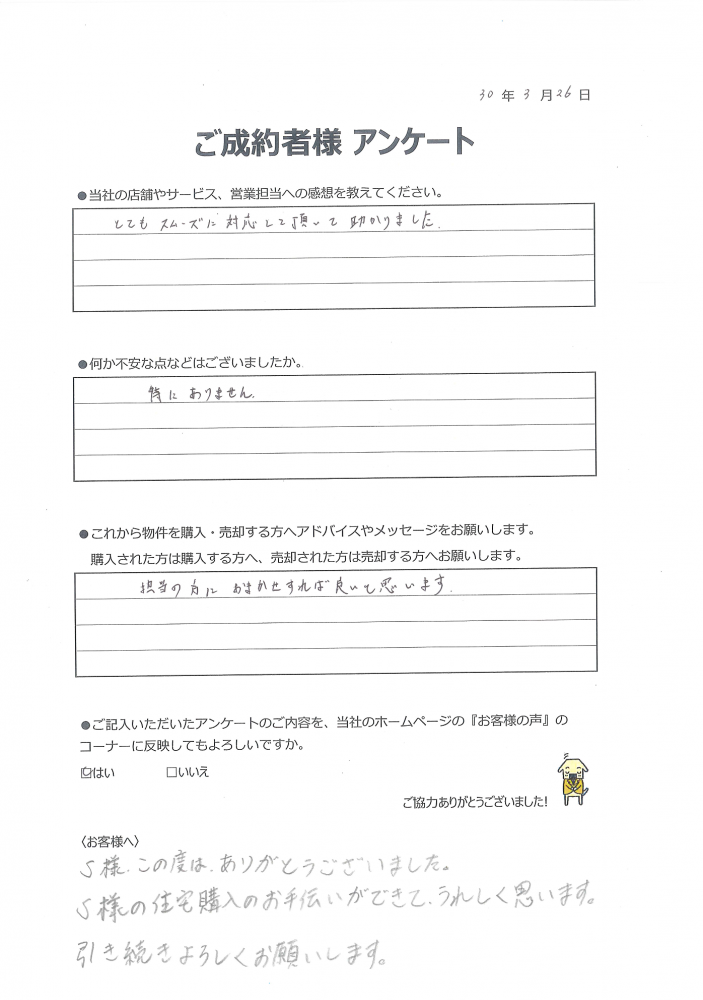 30 年 3 月 26 日
ご成約者様 アンケート
●当社の店舗やサービス、営業担当への感想を教えてください。
とても スムーズに 対応して頂いて 助かりました.
●何か不安な点などはございましたか。
特に ありません.
●これから物件を購入・売却する方へアドバイスやメッセージをお願いします。
購入された方は購入する方へ、売却された方は売却する方へお願いします。
担当の方に おまかせすれば 良いと思います.
●ご記入いただいたアンケートのご内容を、当社のホームページの『お客様の声』の
コーナーに反映してもよろしいですか。
☑はい □いいえ
ご協力ありがとうございました!
〈お客様へ〉
S様、この度は、ありがとうございました。
S様の住宅購入のお手伝いができて、うれしく思います。
引き続きよろしくお願いします。